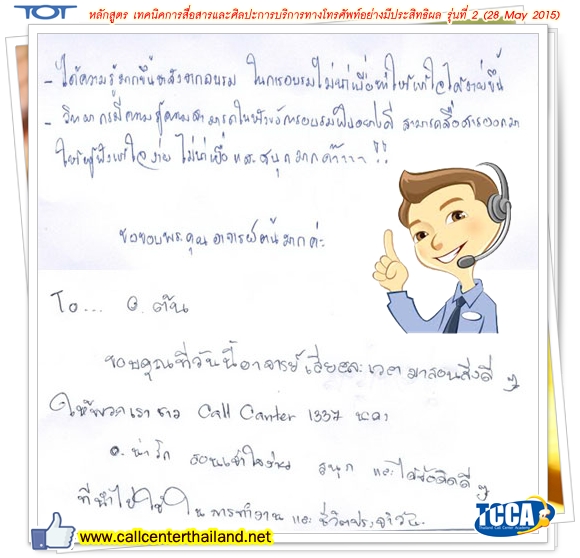 TOT หลักสูตร เทคนิคการสื่อสารและศิลปะการบริการทางโทรศัพท์อย่างมีประสิทธิผล รุ่นที่ 2 (28 May 2015)
- ได้ความรู้มากขึ้นหลังจากอบรม ในการอบรมไม่น่าเบื่อทำให้เข้าใจได้ง่ายขึ้น
- วิทยากรมีความรู้ความสามารถในหัวข้อการอบรมเป็นอย่างดี สามารถสื่อสารออกมา
ให้ผู้ฟังเข้าใจง่าย ไม่น่าเบื่อ และสนุกมากค๊าาาา !!
ขอขอบพระคุณ อาจารย์ต้นมากค่ะ
To... อ. ต้น
ขอบคุณที่วันนี้อาจารย์เสียสละเวลา มาสอนสิ่งดี ๆ
ให้พวกเราชาว Call Canter 1337 นะคะ
อ. น่ารัก สอนเข้าใจง่าย สนุก และได้ข้อคิดดี ๆ
ที่นำไปใช้ในการทำงาน และชีวิตประจำวัน
www.callcenterthailand.net
TCCA
Thailand Call Center Academy